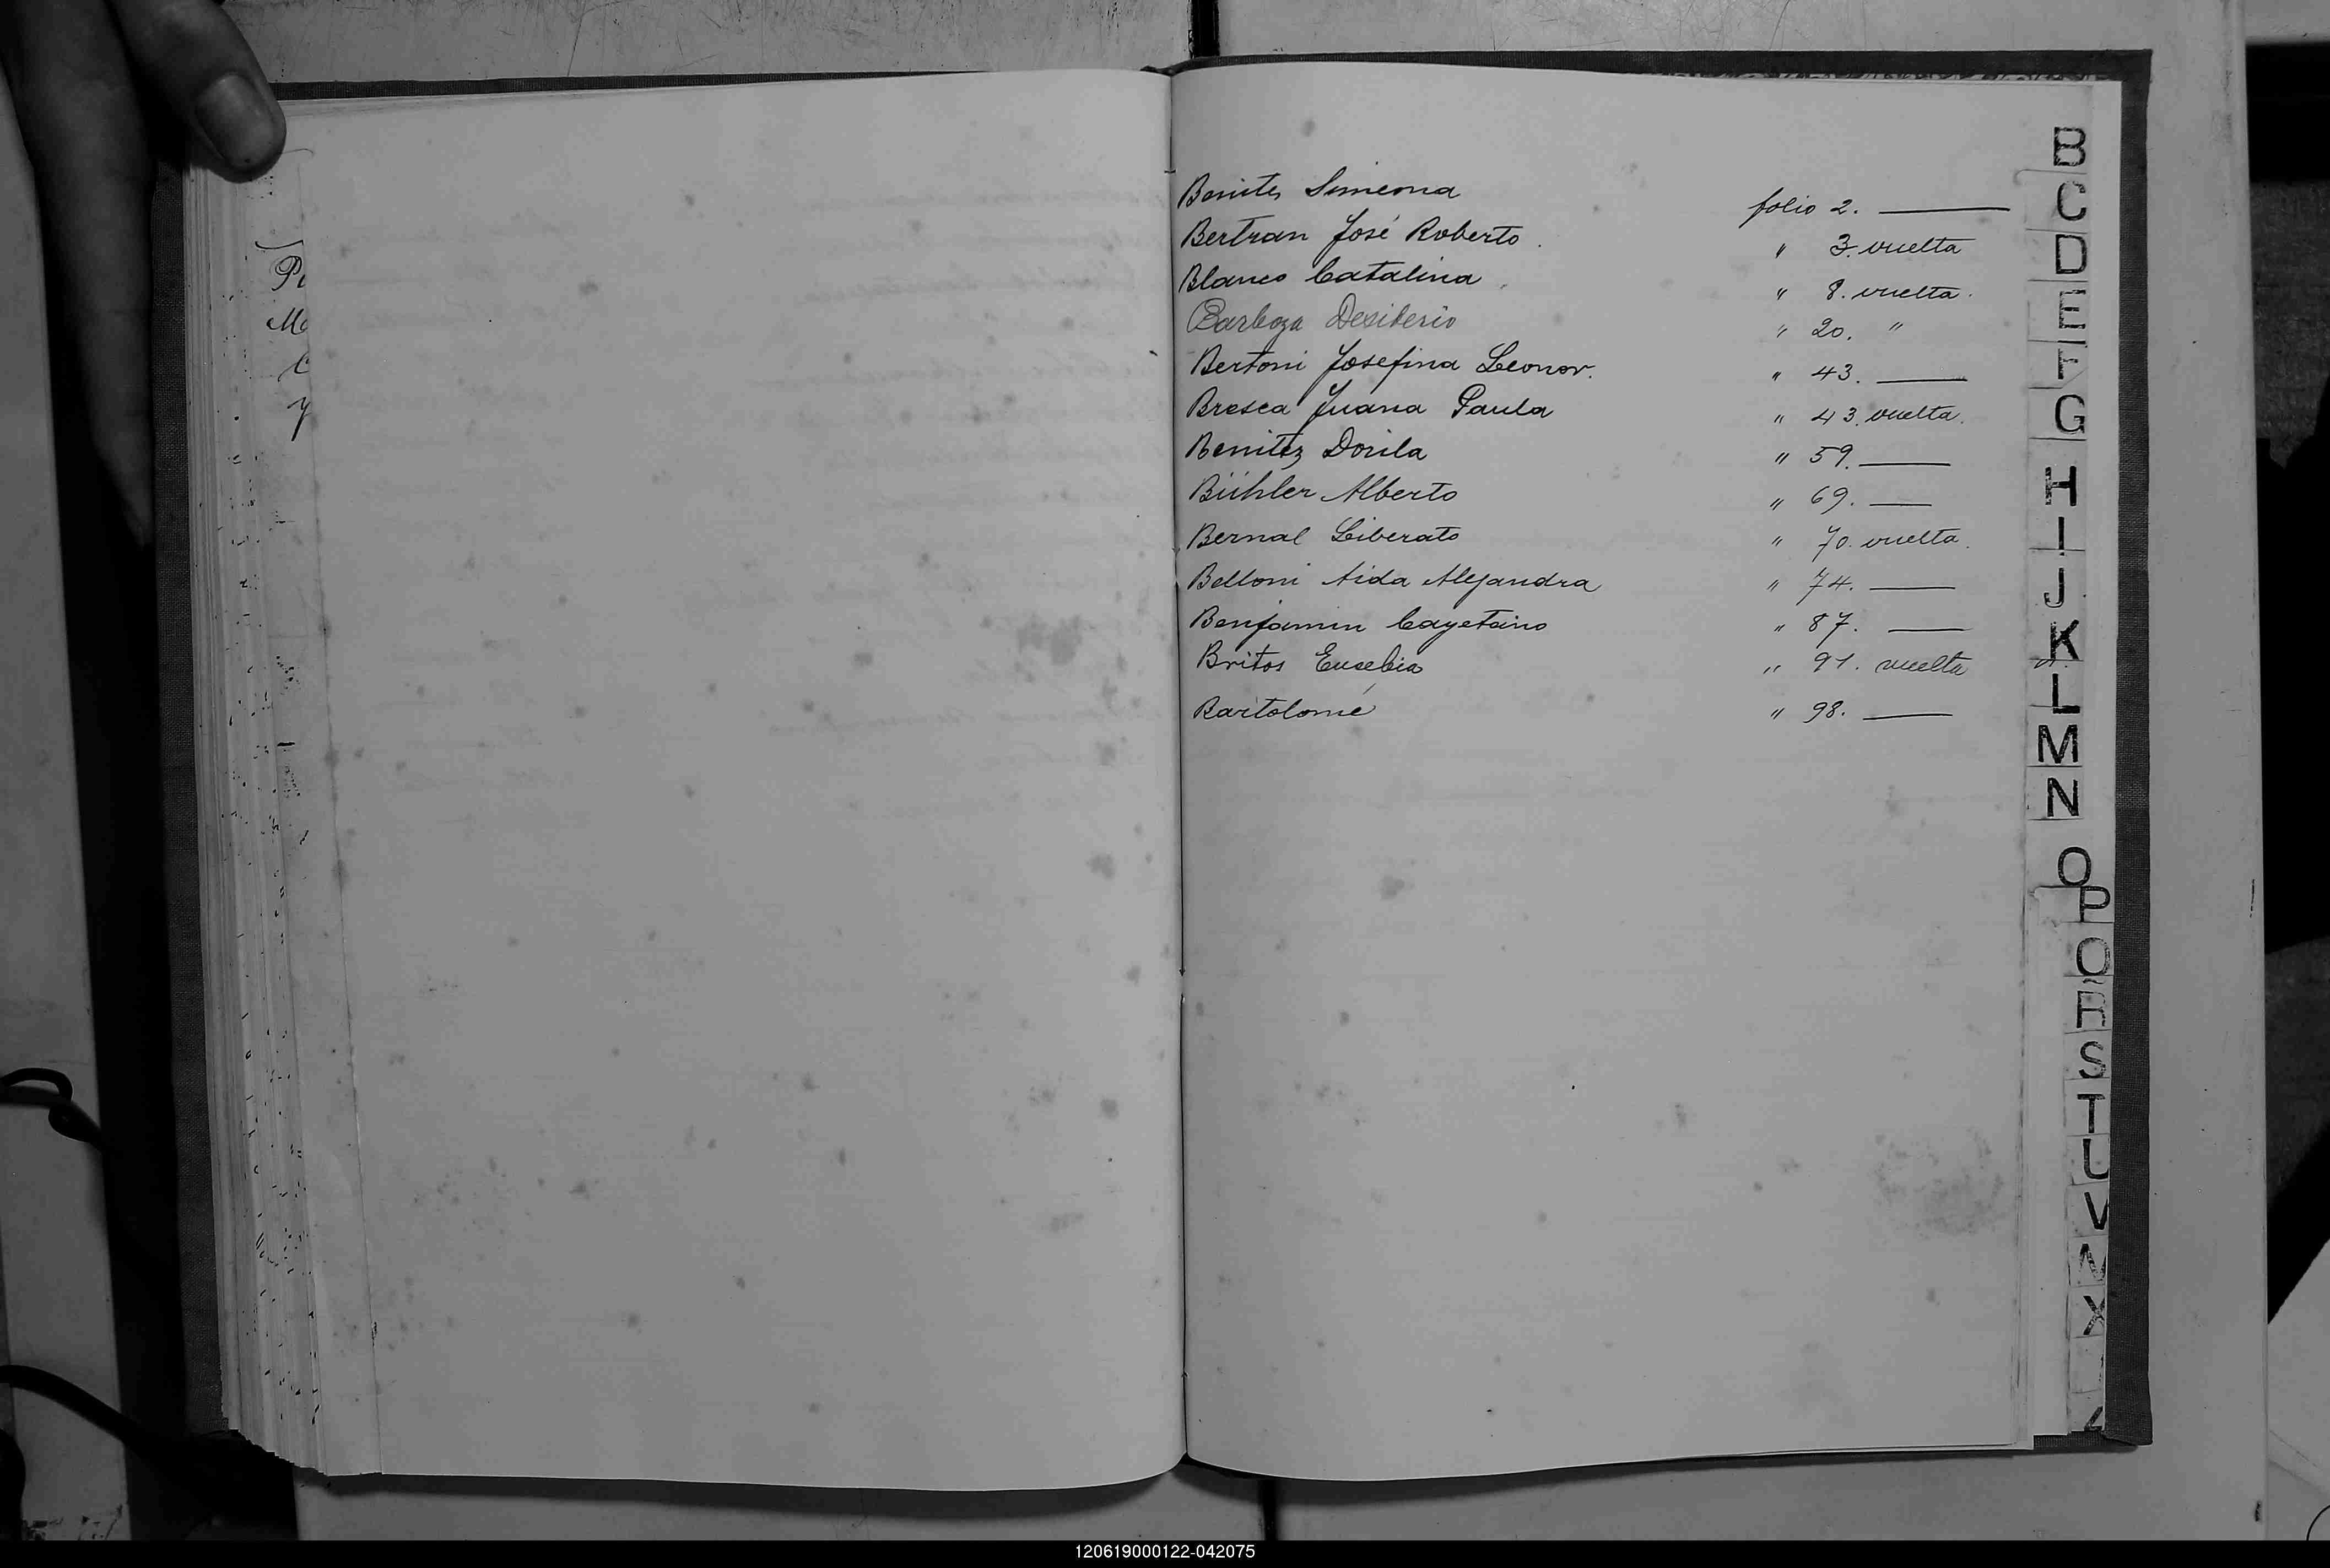 Benites Simeona folio 2. ———
Bertran José Roberto. " 3. vuelta
Blanco Catalina. " 8. vuelta.
Barboza Desiderio " 20. "
Bertoni Josefina Leonor. " 43. ———
Bresca Juana Paula " 43. vuelta.
Benitez Dorila " 59. ———
Bühler Alberto " 69. ———
Bernal Liberato " 70. vuelta.
Belloni Aida Alejandra " 74. ———
Benjamin Cayetano " 87. ———
Britos Eusebia " 91. vuelta
Bartolomé " 98. ———
B
C
D
E
F
G
H
I
J
K
L
M
N
O
P
Q
R
S
T
U
V
X
120619000122-042075